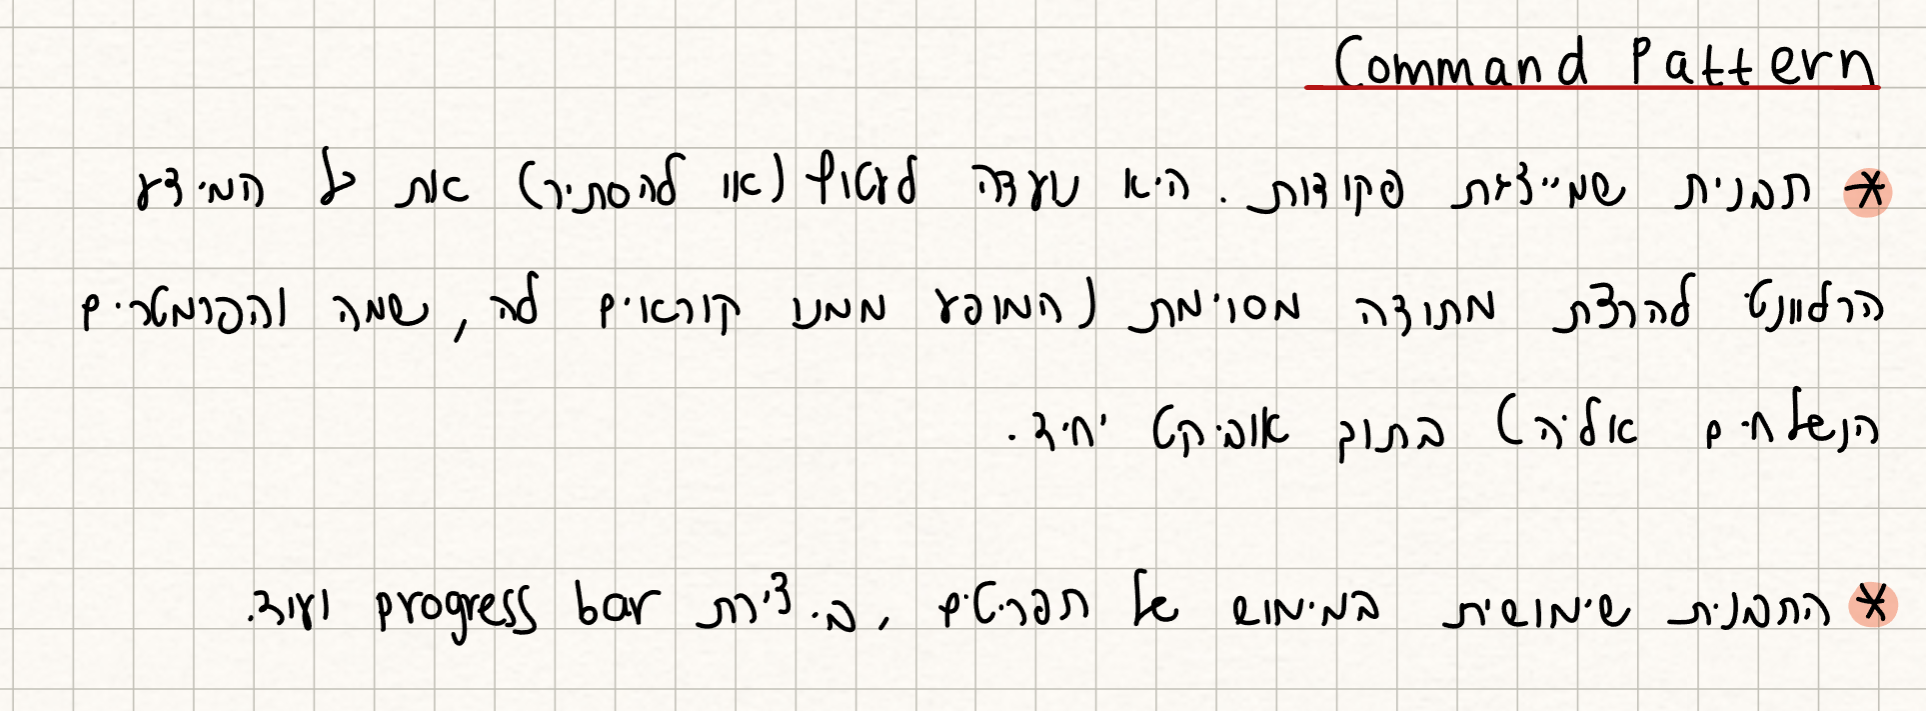 Command Pattern
* תבנית שמייצגת פקודות. היא נועדה לעטוף (או להסתיר) את כל המידע
הרלוונטי להרצת מתודה מסוימת (המופע ממנו קוראים לה, שמה והפרמטרים
הנשלחים אליה) בתוך אובייקט יחיד.
* התבנית שימושית במימוש של תפריטים, ביצירת progress bar ועוד.